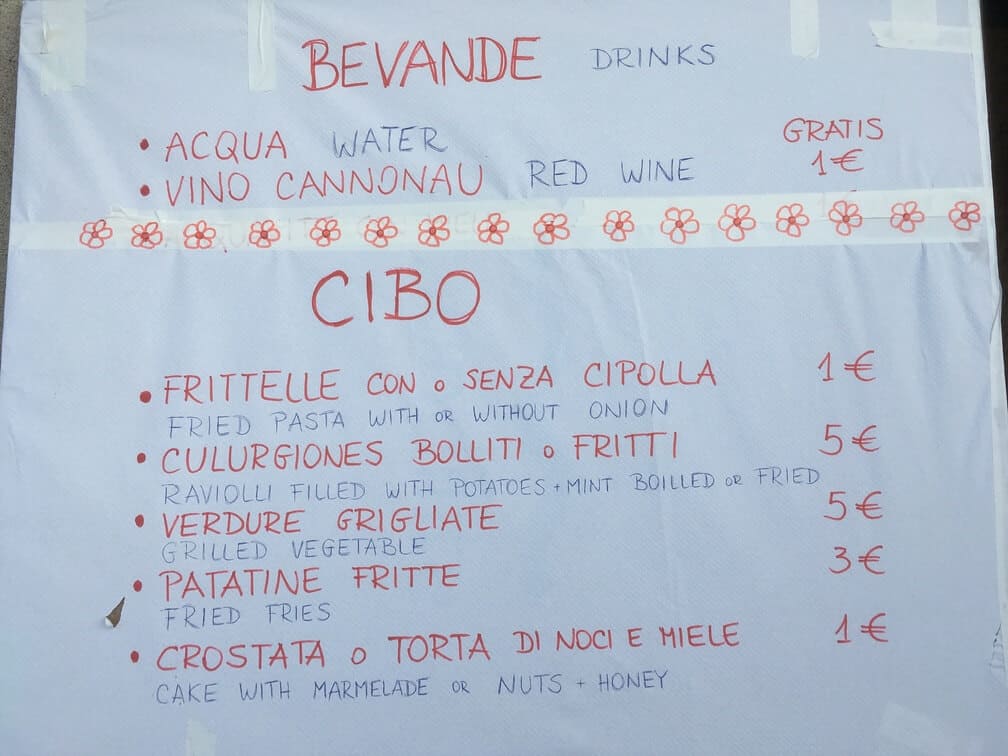 BEVANDE DRINKS
• ACQUA WATER GRATIS
• VINO CANNONAU RED WINE 1€
CIBO
• FRITTELLE CON o SENZA CIPOLLA 1€
FRIED PASTA WITH OR WITHOUT ONION
• CULURGIONES BOLLITI o FRITTI 5€
RAVIOLLI FILLED WITH POTATOES + MINT BOILLED OR FRIED
• VERDURE GRIGLIATE 5€
GRILLED VEGETABLE
• PATATINE FRITTE 3€
FRIED FRIES
• CROSTATA O TORTA DI NOCI E MIELE 1€
CAKE WITH MARMELADE OR NUTS + HONEY